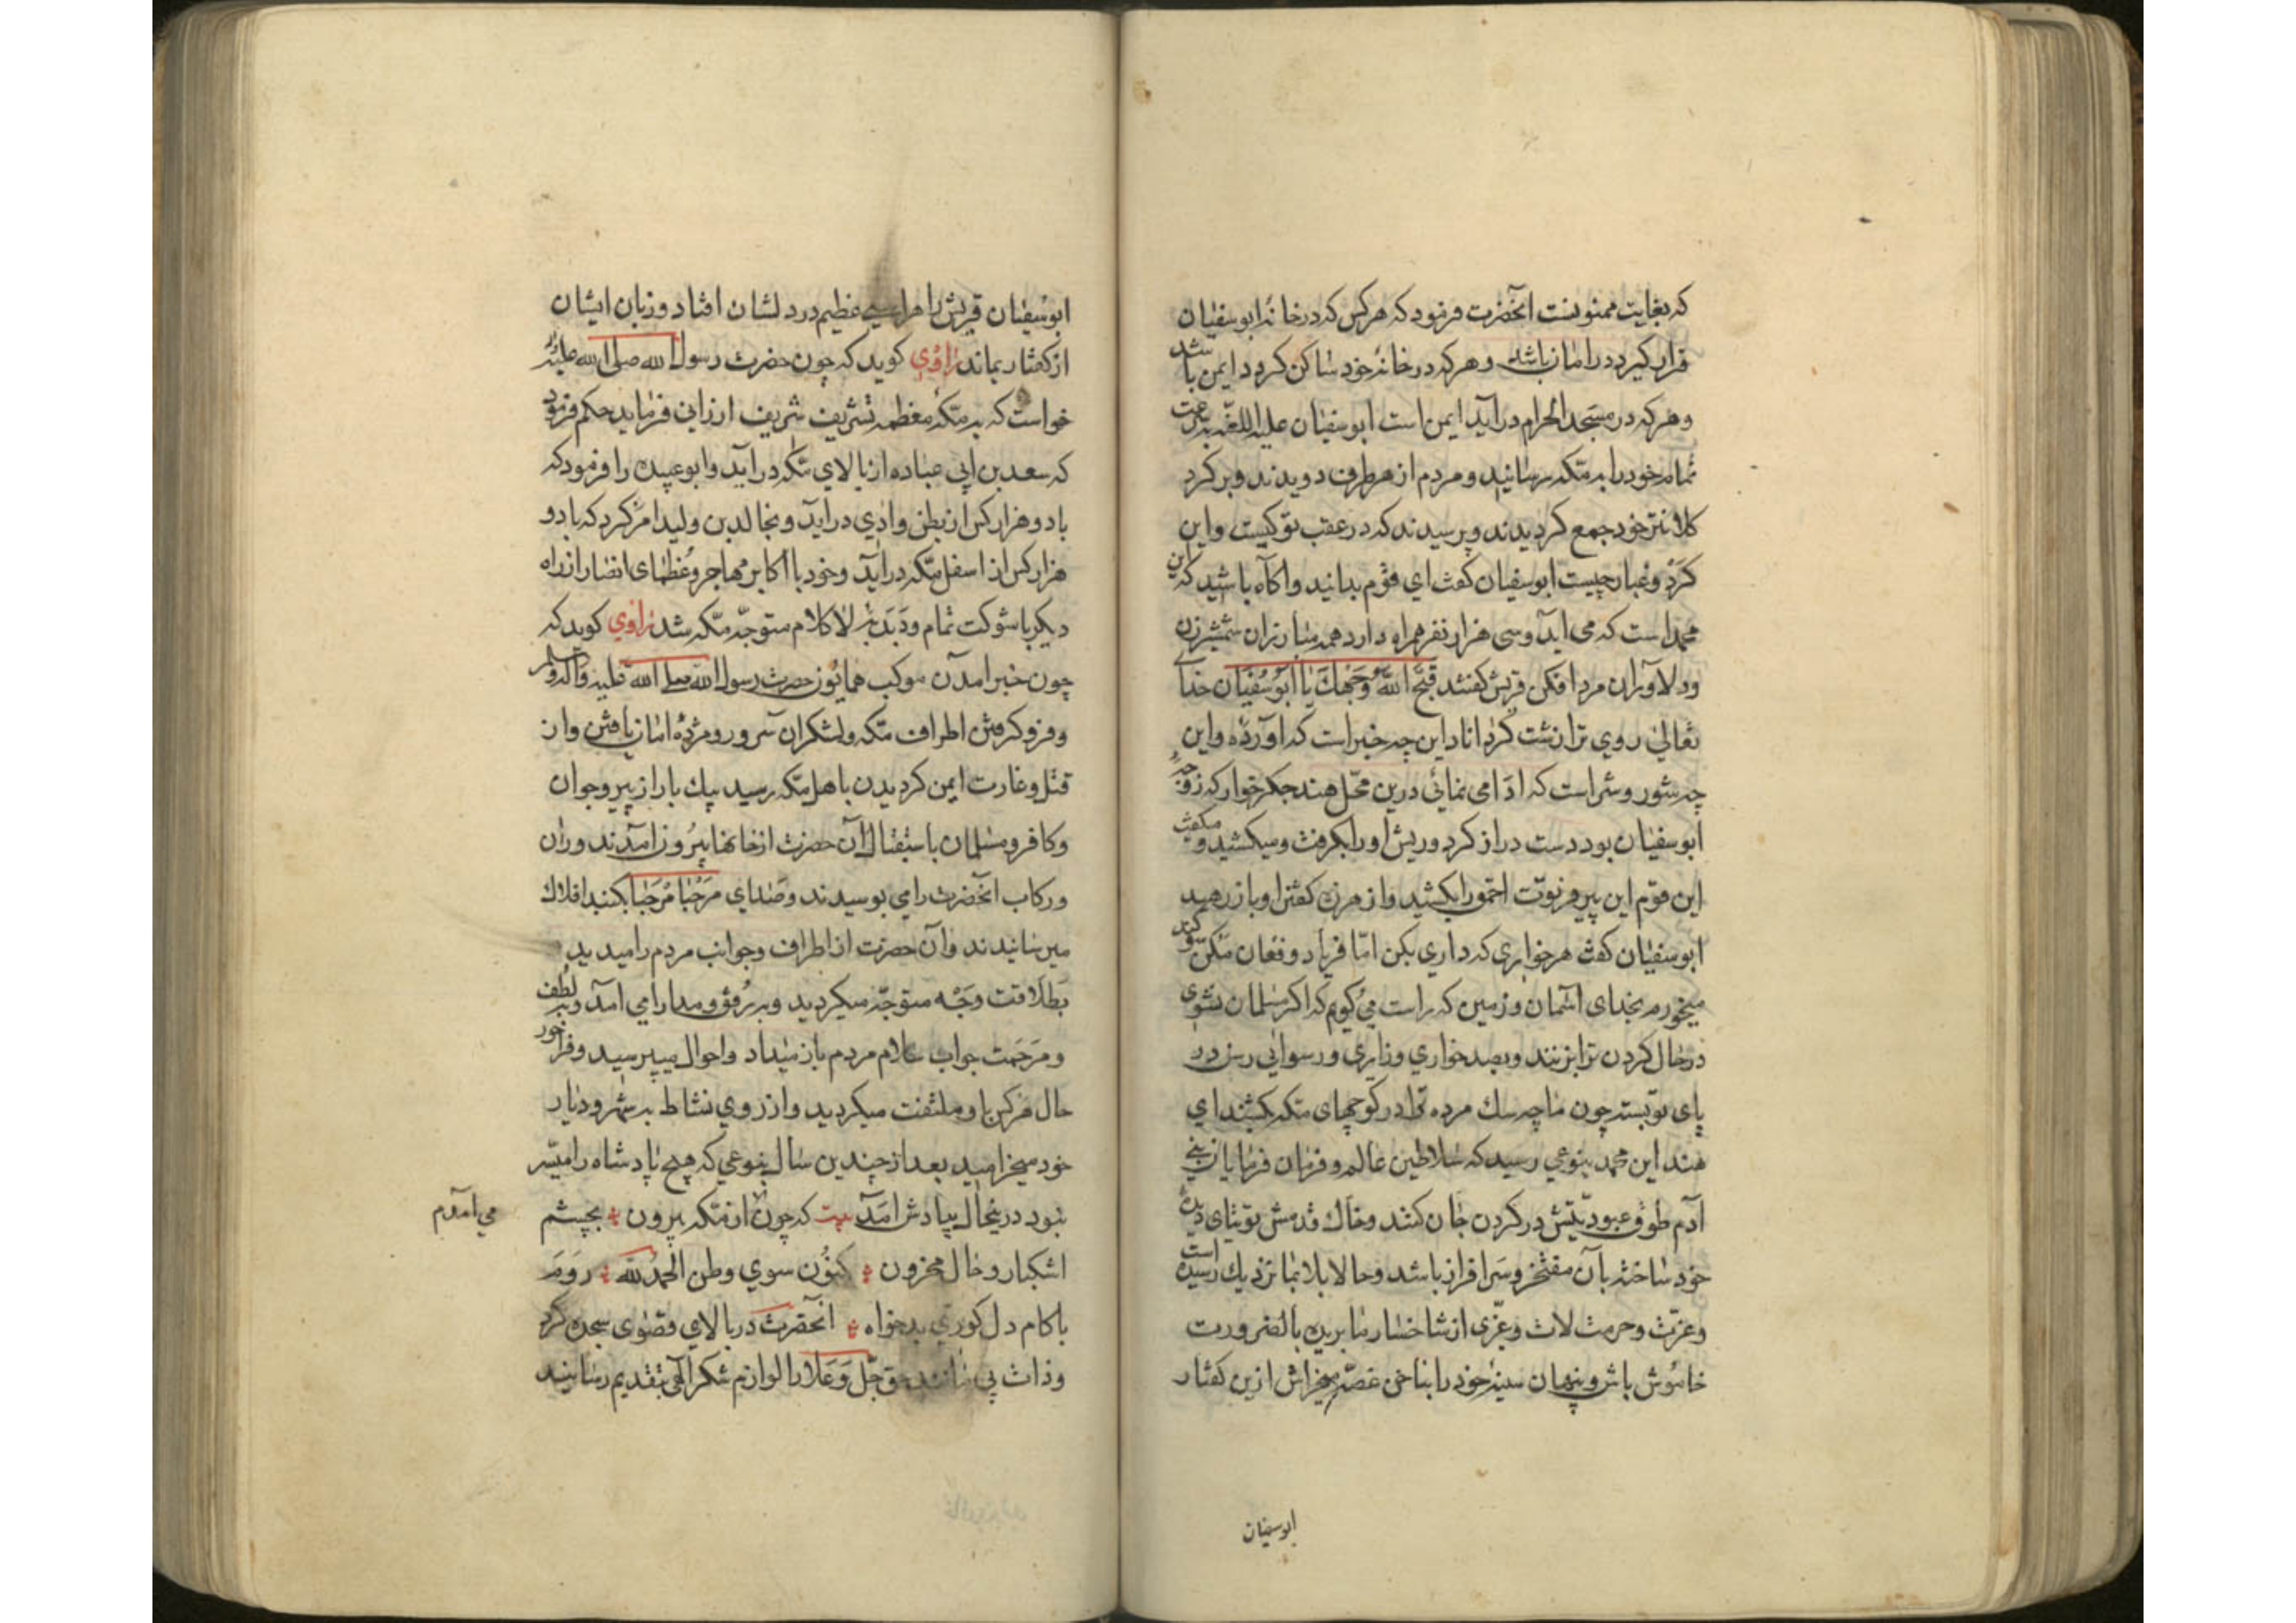 که بغایت ممنونست آنحضرت فرمود که هرکس که در خانه ابوسفیان
قرار کیرد در امان باشد وهرکه در خانه خود ساکن کردد ایمن باشد
وهرکه در مسجد الحرام در آید ایمن است ابوسفیان علیه اللعنه بسرعت
تمام خود را به مکه رسانید ومردم از هر طرف دویدند وبر کرد
کلانتر خود جمع کردیدند وپرسیدند که در عقب تو کیست واین
کرد وغبار چیست ابوسفیان کفت ای قوم بدانید واکاه باشید که این
محمد است که می آید وسی هزار نفر همراه دارد همه مبارزان شمشیرزن
ودلاوران مرد افکن قریش کفتند قبح الله وجهك یا ابوسفیان خدای
تعالی روی ترا زشت کرداناد این چه خبر است که آورده واین
چه شور وشر است که ادا می نمائی درین محل هند جکر خوار که زوجهٔ
ابوسفیان بود دست دراز کرد وریش او را بکرفت ومیکشید ومیکفت
این قوم این پیر فرتوت احمق را بکشید واز هرزه کفتن او باز رهید
ابوسفیان کفت هر خواری که داری بکن اما فریاد وفغان مکن
میخورم بخدای آسمان وزمین که راست می کویم که اکر مسلمان نشوی
در حال کردن ترا بزنند وبصد خواری وزاری ورسوایی رسن در
پای تو بسته چون ماچه سك مرده ترا در کوچهای مکه بکشند ای
هند این محمد بنوعی رسید که سلاطین عالم وفرمان فرمایان بنی
آدم طوق عبودیتش در کردن جان کنند وخاك قدمش توتیای دیده
خود ساخته بآن مفتخر وسرافراز باشد وحالا بلا بما نزدیك رسیده است
وعزت وحرمت لات وعزی از شاخسار ما بریده بالضرورت
خاموش باش وپنهان سینه خود را بناخن غصه میخراش ازین کفتار
ابوسفیان
ابوسفیان قریش را هراسی عظیم در دلشان افتاد وزبان ایشان
از کفتار بماند راوی کوید که چون حضرت رسول الله صلی الله علیه
خواست که به مکه معظمه تشریف شریف ارزانی فرماید حکم فرمود
که سعد بن ابی عباده از بالای مکه در آید وابو عبیده را فرمود که
با دو هزار کس از بطن وادی در آید وبخالد بن ولید امر کرد که با دو
هزار کس از اسفل مکه در آید وخود با اکابر مهاجر وعظمای انصار از راه
دیکر با شوکت تمام ودبدبه لا کلام متوجه مکه شد راوی کوید که
چون خبر امدن موکب همایون حضرت رسول الله صلی الله علیه واله وسلم
وفرو کرفتن اطراف مکه ولشکران سرور ومژدهٔ امان یافتن واز
قتل وغارت ایمن کردیدن باهل مکه رسید بیك بار از پیر وجوان
وکافر ومسلمان باستقبال آن حضرت از خانها بیرون آمدند وران
ورکاب آنحضرت را می بوسیدند وصدای مرحبا مرحبا بکنبد افلاك
میرسانیدند وآن حضرت از اطراف وجوانب مردم را میدید
بطلاقت وجه متوجه میکردید وبه رفق ومدارا می آمد وبه لطف
ومرحمت جواب سلام مردم باز میداد واحوال میپرسید وفراخور
حال هرکس باو ملتفت میکردید واز روی نشاط به شهر ودیار
خود میخرامید بعد از چندین سال بنوعی که هیچ پادشاه را میسر
نبود در ینحال بیادش آمد بیت که چون از مکه بیرون بچشم
می آمدم
اشکبار وحال محزون کنون سوی وطن الحمد لله روم
با کام دل کوری بدخواه آنحضرت در بالای قصوی سجده کرد
وذات بی مانند حق جل وعلا را لوازم شکر الهی بتقدیم رسانید